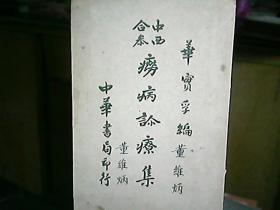 華實孚編
董維炳
中西
合参
癆病診療集
中華書局印行
董維炳